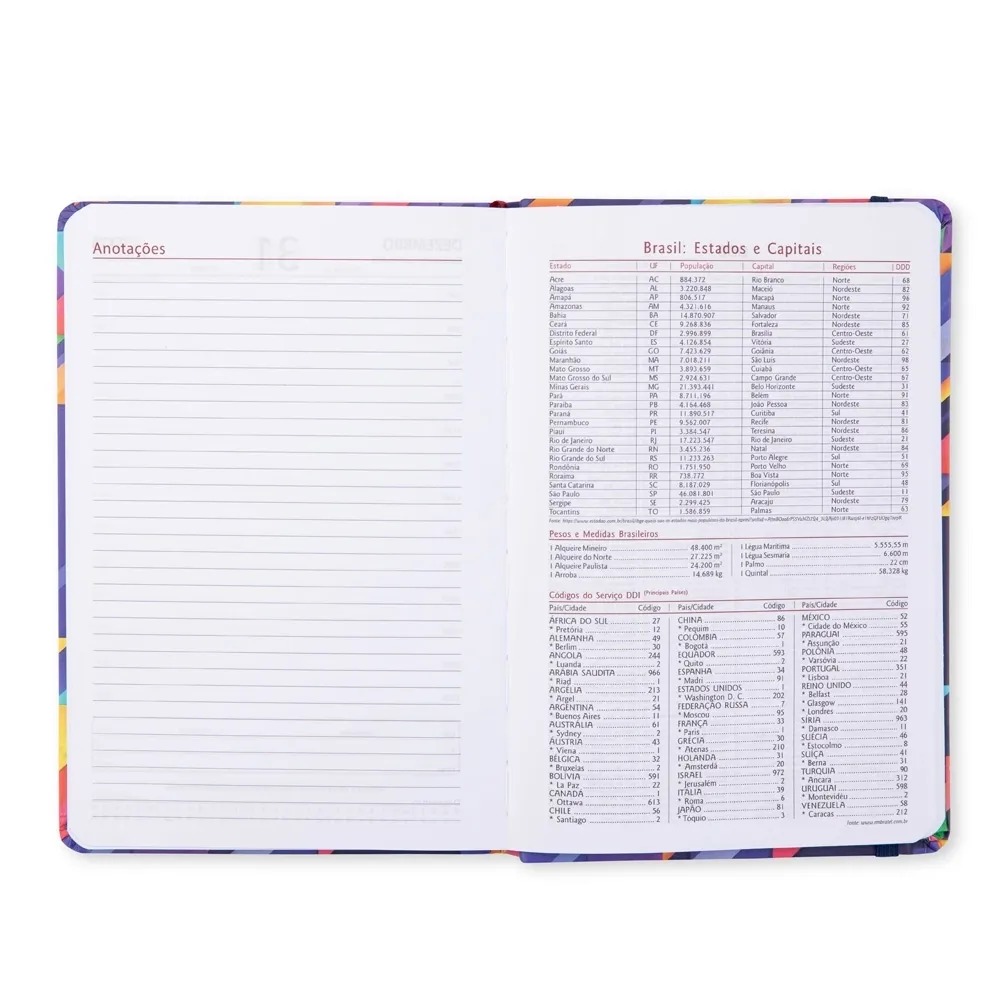 Anotações
Brasil: Estados e Capitais
Estado UF População Capital Regiões DDD
Acre AC 884.372 Rio Branco Norte 68
Alagoas AL 3.220.848 Maceió Nordeste 82
Amapá AP 806.517 Macapá Norte 96
Amazonas AM 4.321.616 Manaus Norte 92
Bahia BA 14.870.907 Salvador Nordeste 71
Ceará CE 9.268.836 Fortaleza Nordeste 85
Distrito Federal DF 2.996.899 Brasília Centro-Oeste 61
Espírito Santo ES 4.126.854 Vitória Sudeste 27
Goiás GO 7.423.629 Goiânia Centro-Oeste 62
Maranhão MA 7.018.211 São Luis Nordeste 98
Mato Grosso MT 3.893.659 Cuiabá Centro-Oeste 65
Mato Grosso do Sul MS 2.924.631 Campo Grande Centro-Oeste 67
Minas Gerais MG 21.393.441 Belo Horizonte Sudeste 31
Pará PA 8.711.196 Belém Norte 91
Paraíba PB 4.164.468 João Pessoa Nordeste 83
Paraná PR 11.890.517 Curitiba Sul 41
Pernambuco PE 9.562.007 Recife Nordeste 81
Piauí PI 3.384.547 Teresina Nordeste 86
Rio de Janeiro RJ 17.223.547 Rio de Janeiro Sudeste 21
Rio Grande do Norte RN 3.455.236 Natal Nordeste 84
Rio Grande do Sul RS 11.233.263 Porto Alegre Sul 51
Rondônia RO 1.751.950 Porto Velho Norte 69
Roraima RR 738.772 Boa Vista Norte 95
Santa Catarina SC 8.187.029 Florianópolis Sul 48
São Paulo SP 46.081.801 São Paulo Sudeste 11
Sergipe SE 2.299.425 Aracaju Nordeste 79
Tocantins TO 1.586.859 Palmas Norte 63
Pesos e Medidas Brasileiros
1 Alqueire Mineiro 48.400 m² 1 Légua Marítima 5.555,55 m
1 Alqueire do Norte 27.225 m² 1 Légua Sesmaria 6.600 m
1 Alqueire Paulista 24.200 m² 1 Palmo 22 cm
1 Arroba 14,689 kg 1 Quintal 58,328 kg
Códigos do Serviço DDI (Principais Países)
País/Cidade Código País/Cidade Código País/Cidade Código
ÁFRICA DO SUL 27
* Pretória 12
ALEMANHA 49
* Berlim 30
ANGOLA 244
* Luanda 2
ARÁBIA SAUDITA 966
* Riad 1
ARGÉLIA 213
* Argel 21
ARGENTINA 54
* Buenos Aires 11
AUSTRÁLIA 61
* Sydney 2
ÁUSTRIA 43
* Viena 1
BÉLGICA 32
* Bruxelas 2
BOLÍVIA 591
* La Paz 22
CANADÁ 1
* Ottawa 613
CHILE 56
* Santiago 2
CHINA 86
* Pequim 10
COLÔMBIA 57
* Bogotá 1
EQUADOR 593
* Quito 2
ESPANHA 34
* Madri 91
ESTADOS UNIDOS 1
* Washington D. C. 202
FEDERAÇÃO RUSSA 7
* Moscou 95
FRANÇA 33
* Paris 1
GRÉCIA 30
* Atenas 210
HOLANDA 31
* Amsterdã 20
ISRAEL 972
* Jerusalém 2
ITÁLIA 39
* Roma 6
JAPÃO 81
* Tóquio 3
MÉXICO 52
* Cidade do México 55
PARAGUAI 595
* Assunção 21
POLÔNIA 48
* Varsóvia 22
PORTUGAL 351
* Lisboa 21
REINO UNIDO 44
* Belfast 28
* Glasgow 141
* Londres 20
SÍRIA 963
* Damasco 11
SUÉCIA 46
* Estocolmo 8
SUÍÇA 41
* Berna 31
TURQUIA 90
* Ancara 312
URUGUAI 598
* Montevidéu 2
VENEZUELA 58
* Caracas 212
Fonte: www.embratel.com.br